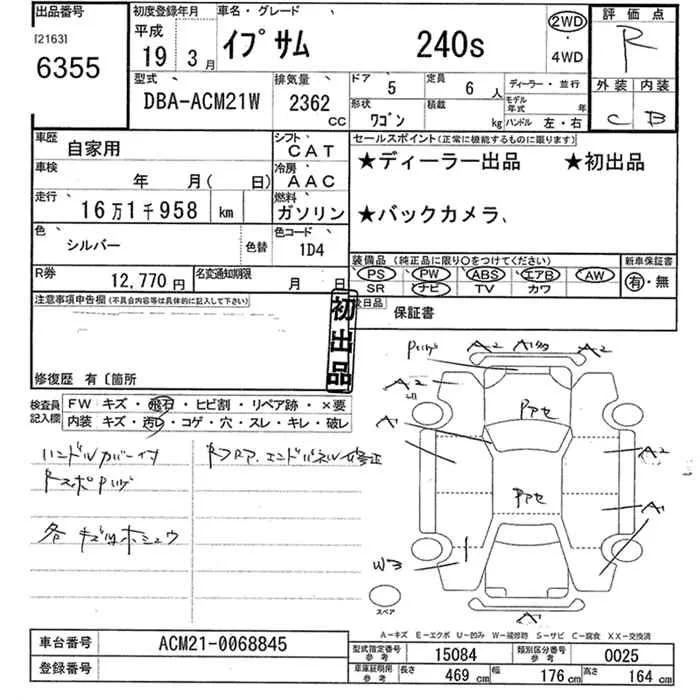 出品番号
[2163]
6355
初度登録年月
平成
19 年 3 月
車名・グレード
イプサム 240s
2WD
・
4WD
評価点
R
外装 内装
C B
型式
DBA-ACM21W
排気量
2362
CC
ドア 5
定員 6 人
ディーラー・並行
形状 ワゴン
積載 kg
モデル年式 年
ハンドル 左・右
車歴 自家用
シフト CAT
車検 年 月( 日)
冷房 AAC
走行 16万1千958 km
燃料 ガソリン
色 シルバー
色替
色コード 1D4
R券 12,770 円
名変通知期限 月 日
セールスポイント(正常に機能するものに限ります)
★ディーラー出品 ★初出品
★バックカメラ、
装備品 (純正品に限り○をつけてください)
PS PW ABS エアB AW
SR ナビ TV カワ
新車保証書
有・無
注意事項申告欄(不具合内容等は具体的に記入して下さい)
初出品
次日品 保証書
修復歴 有〔箇所
検査員記入欄
FW キズ・飛石・ヒビ割・リペア跡・×要
内装 キズ・汚レ・コゲ・穴・スレ・キレ・破レ
ハンドルカバー付
各キズ小ホシュウ
A2
A2
A2
A1
A2
Pアセ
Pアセ
A1
W3
スペア
A-キズ E-エクボ U-凹み W-補修跡 S-サビ C-腐食 XX-交換済
車台番号 ACM21-0068845
登録番号
型式指定番号 参考 15084
類別区分番号 参考 0025
車庫証明用 参考 長さ 469 cm 幅 176 cm 高さ 164 cm